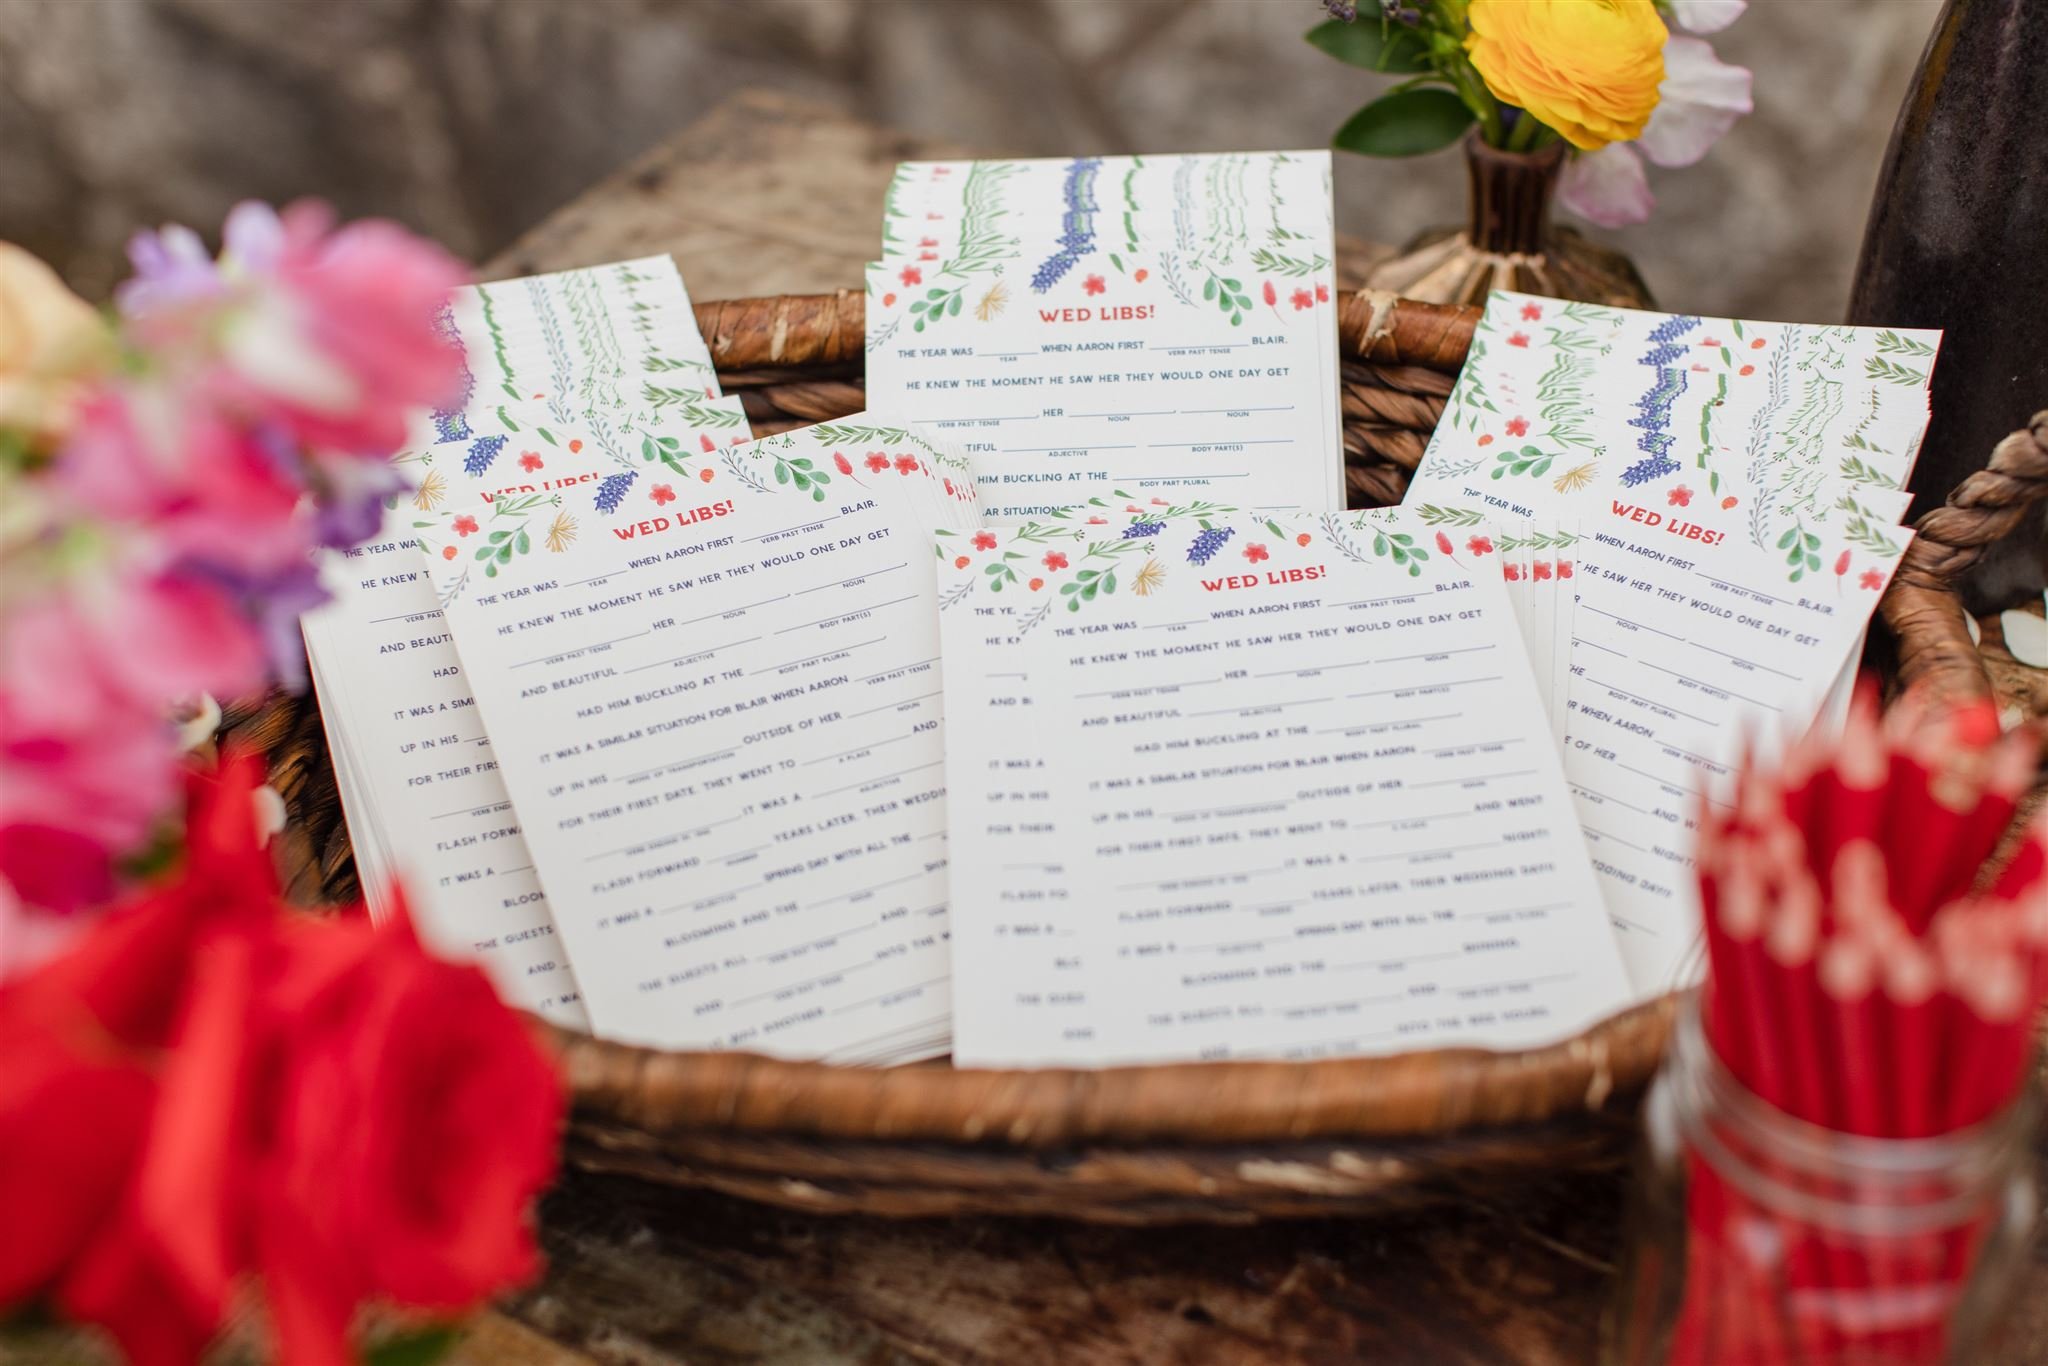 WED LIBS!
THE YEAR WAS ____ WHEN AARON FIRST ____ BLAIR.
YEAR VERB PAST TENSE
HE KNEW THE MOMENT HE SAW HER THEY WOULD ONE DAY GET
____, HER ____, ____,
VERB PAST TENSE NOUN NOUN
TIFUL
ADJECTIVE BODY PART(S)
HIM BUCKLING AT THE ____.
BODY PART PLURAL
LAR SITUATION FOR
WED LIBS!
THE YEAR WAS
HE KNEW T
VERB PAST
AND BEAUTI
HAD
IT WAS A SIMI
UP IN HIS
FOR THEIR FIRS
VERB END
FLASH FORWA
IT WAS A
BLOOM
THE GUESTS
AND
IT WA
WED LIBS!
THE YEAR WAS ____ WHEN AARON FIRST ____ BLAIR.
YEAR VERB PAST TENSE
HE KNEW THE MOMENT HE SAW HER THEY WOULD ONE DAY GET
____, HER ____, ____,
VERB PAST TENSE NOUN NOUN
AND BEAUTIFUL
ADJECTIVE BODY PART(S)
HAD HIM BUCKLING AT THE ____.
BODY PART PLURAL
IT WAS A SIMILAR SITUATION FOR BLAIR WHEN AARON
VERB PAST TENSE
UP IN HIS ____ OUTSIDE OF HER
MODE OF TRANSPORTATION NOUN
FOR THEIR FIRST DATE. THEY WENT TO ____ AND
A PLACE
____. IT WAS A
VERB ENDING IN -ING ADJECTIVE
FLASH FORWARD ____ YEARS LATER. THEIR WEDDIN
NUMBER
IT WAS A ____ SPRING DAY WITH ALL THE
ADJECTIVE
BLOOMING AND THE ____ SHI
NOUN
THE GUESTS ALL ____ AND
VERB PAST TENSE
AND ____ INTO THE W
VERB PAST TENSE
IT WAS ANOTHER
ADJECTIVE
THE YE
HE K
AND B
IT WAS A
UP IN HIS
FOR THEIR
FLASH FO
IT WAS A
BLO
THE GUES
AND
WED LIBS!
THE YEAR WAS ____ WHEN AARON FIRST ____ BLAIR.
YEAR VERB PAST TENSE
HE KNEW THE MOMENT HE SAW HER THEY WOULD ONE DAY GET
____, HER ____, ____,
VERB PAST TENSE NOUN NOUN
AND BEAUTIFUL
ADJECTIVE BODY PART(S)
HAD HIM BUCKLING AT THE ____.
BODY PART PLURAL
IT WAS A SIMILAR SITUATION FOR BLAIR WHEN AARON
VERB PAST TENSE
UP IN HIS ____ OUTSIDE OF HER
MODE OF TRANSPORTATION NOUN
FOR THEIR FIRST DATE. THEY WENT TO ____ AND WENT
A PLACE
____. IT WAS A ____ NIGHT!
VERB ENDING IN -ING ADJECTIVE
FLASH FORWARD ____ YEARS LATER. THEIR WEDDING DAY!!
NUMBER
IT WAS A ____ SPRING DAY WITH ALL THE
ADJECTIVE NOUN PLURAL
BLOOMING AND THE ____ SHINING.
NOUN
THE GUESTS ALL ____ AND
VERB PAST TENSE VERB PAST TENSE
AND ____ INTO THE WEE HOURS.
VERB PAST TENSE
THE YEAR WAS
WED LIBS!
WHEN AARON FIRST ____ BLAIR.
VERB PAST TENSE
HE SAW HER THEY WOULD ONE DAY GET
NOUN NOUN
BODY PART(S)
THE
BODY PART PLURAL
IR WHEN AARON
VERB PAST TENSE
E OF HER
NOUN
A PLACE AND W
NIGHT!
DDING DAY!!